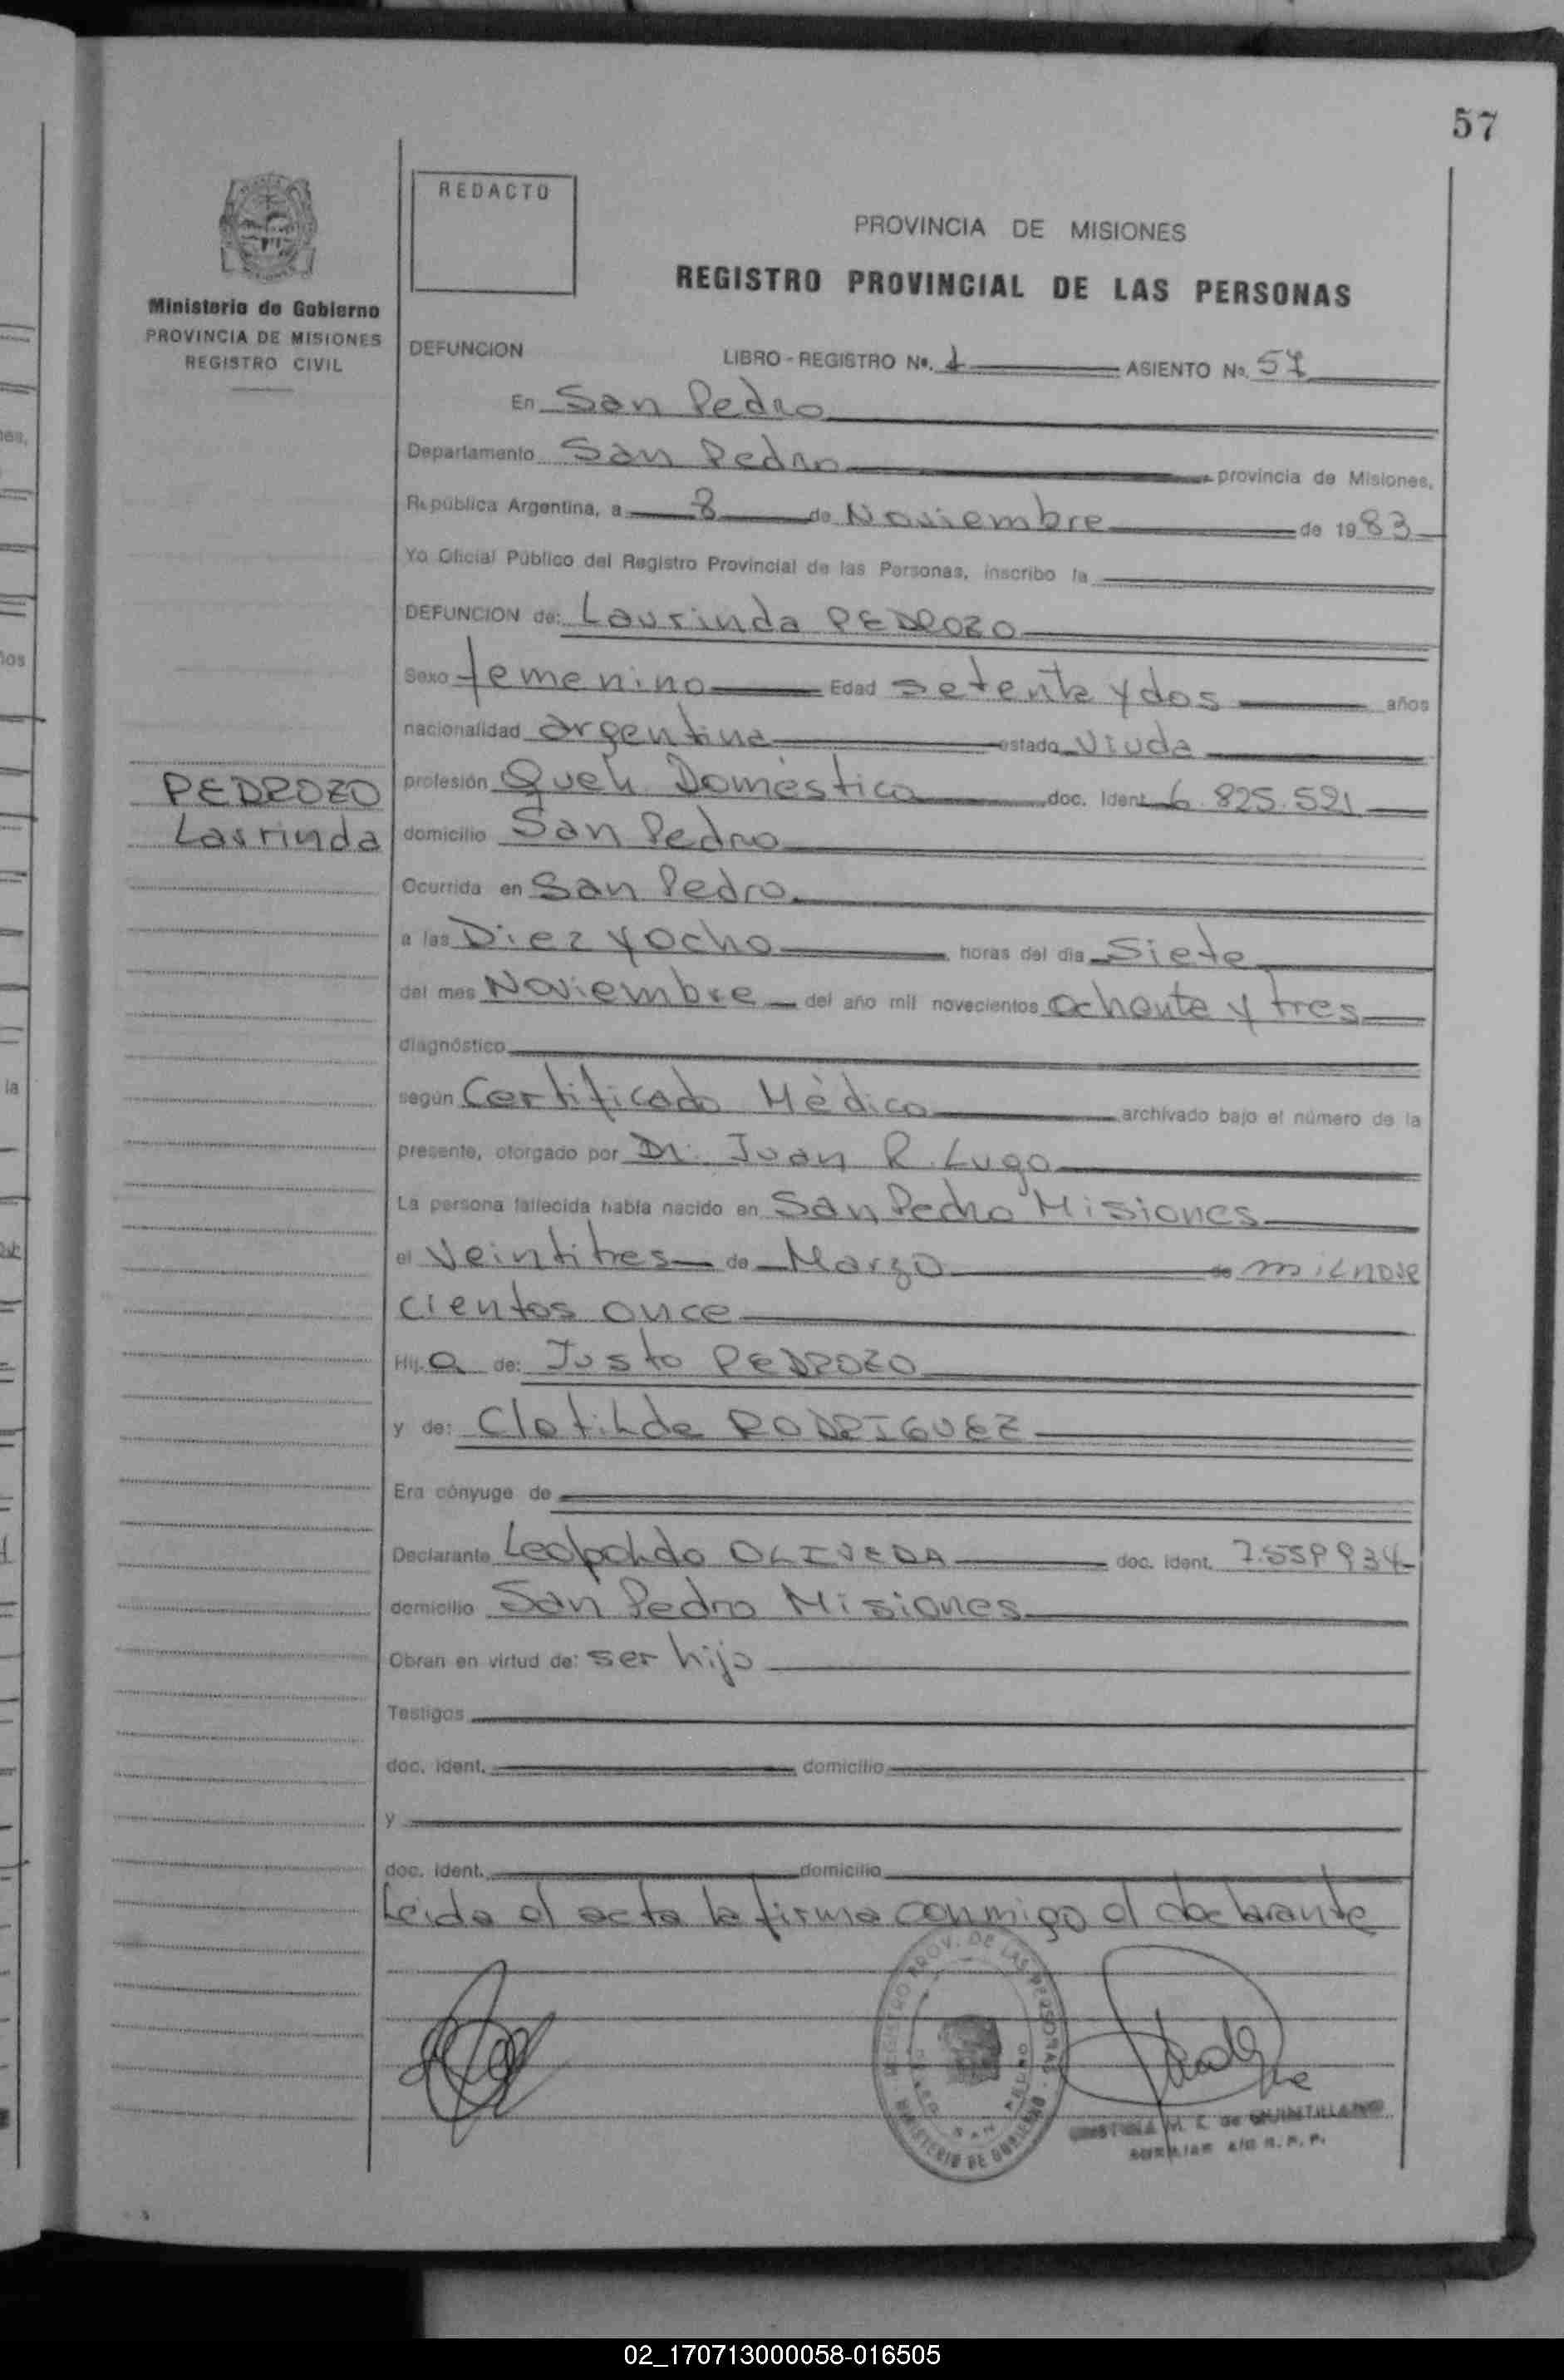 57
REDACTO
PROVINCIA DE MISIONES
REGISTRO PROVINCIAL DE LAS PERSONAS
Ministerio de Gobierno
PROVINCIA DE MISIONES
REGISTRO CIVIL
DEFUNCION LIBRO - REGISTRO Nº. 1 ASIENTO Nº. 57
En San Pedro
Departamento San Pedro provincia de Misiones,
República Argentina, a 8 de Noviembre de 1983
Yo Oficial Público del Registro Provincial de las Personas, inscribo la
DEFUNCION de: Laurinda PEDROZO
Sexo femenino Edad setenta y dos años
nacionalidad argentina estado Viuda
PEDROZO
Laurinda
profesión Queh. Doméstico doc. Ident. 6.825.521
domicilio San Pedro
Ocurrida en San Pedro
a las Diez y ocho horas del día Siete
del mes Noviembre del año mil novecientos ochenta y tres
diagnóstico
según Certificado Mèdico archivado bajo el número de la
presente, otorgado por Dr. Juan R. Lugo
La persona fallecida había nacido en San Pedro Misiones
el Veintitres de Marzo de milnove
cientos once
Hij a de: Justo PEDROZO
y de: Clotilde RODRIGUEZ
Era cónyuge de
Declarante Leopoldo OLIVEDA doc. ident.
domicilio San Pedro Misiones
Obran en virtud de: ser hijo
Testigos
doc. ident. domicilio
y
doc. ident. domicilio
Leida el acta la firma conmigo el declarante
REGISTRO PROV. DE LAS PERSONAS
MINISTERIO DE GOBIERNO
M. C. de QUINTILLANO
02_170713000058-016505